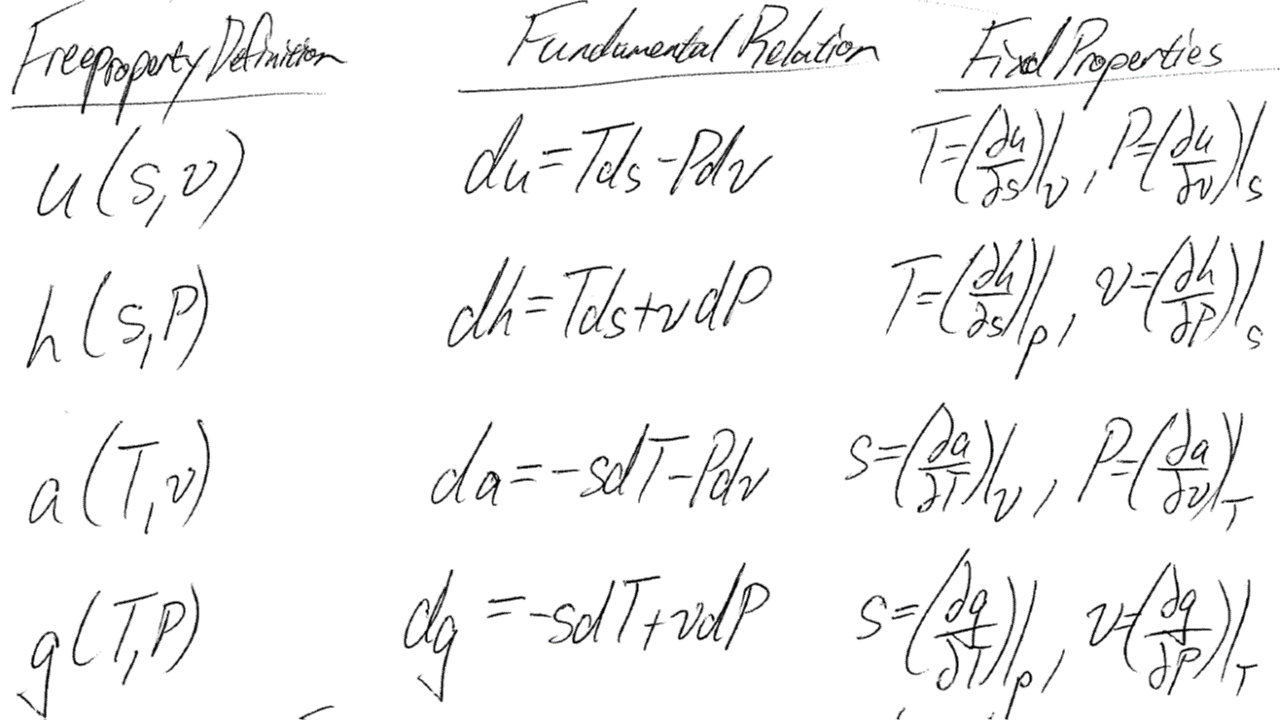 Free property Definition Fundamental Relation Fixed Properties
u(s,v) du=Tds-Pdv T=(∂u/∂s)|v, P=(∂u/∂v)|s
h(s,P) dh=Tds+vdP T=(∂h/∂s)|P, v=(∂h/∂P)|s
a(T,v) da=-sdT-Pdv s=(∂a/∂T)|v, P=(∂a/∂v)|T
g(T,P) dg=-sdT+vdP s=(∂g/∂T)|P, v=(∂g/∂P)|T